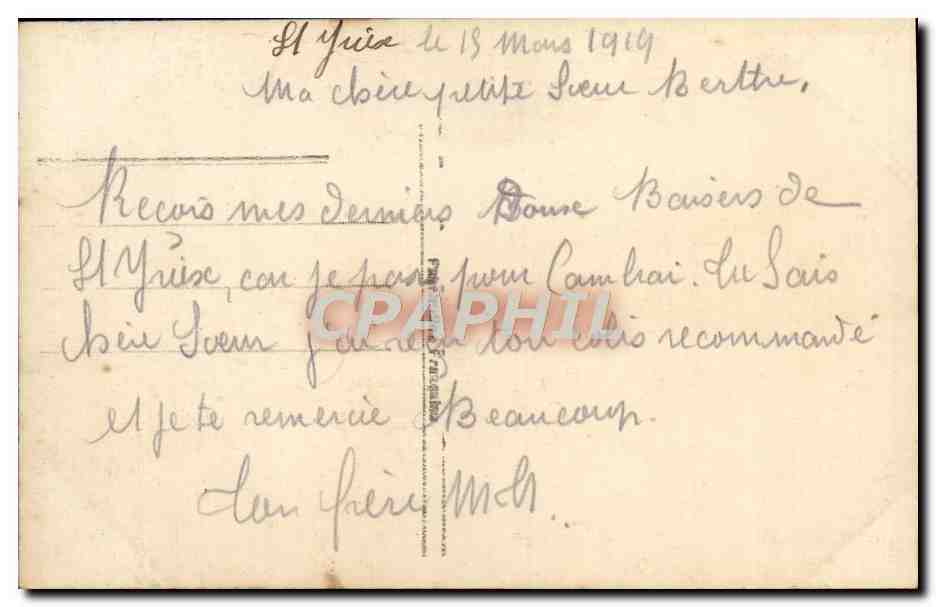 St Yrieix le 15 Mars 1919
Ma chère petite Sœur Berthe,
Recois mes derniers Doux Baisers de
St Yrieix, car je pars pour Cambrai. Tu Sais
chère Sœur j'ai reçu ton colis recommandé
et je te remercie Beaucoup.
Ton frère
CPAPHIL